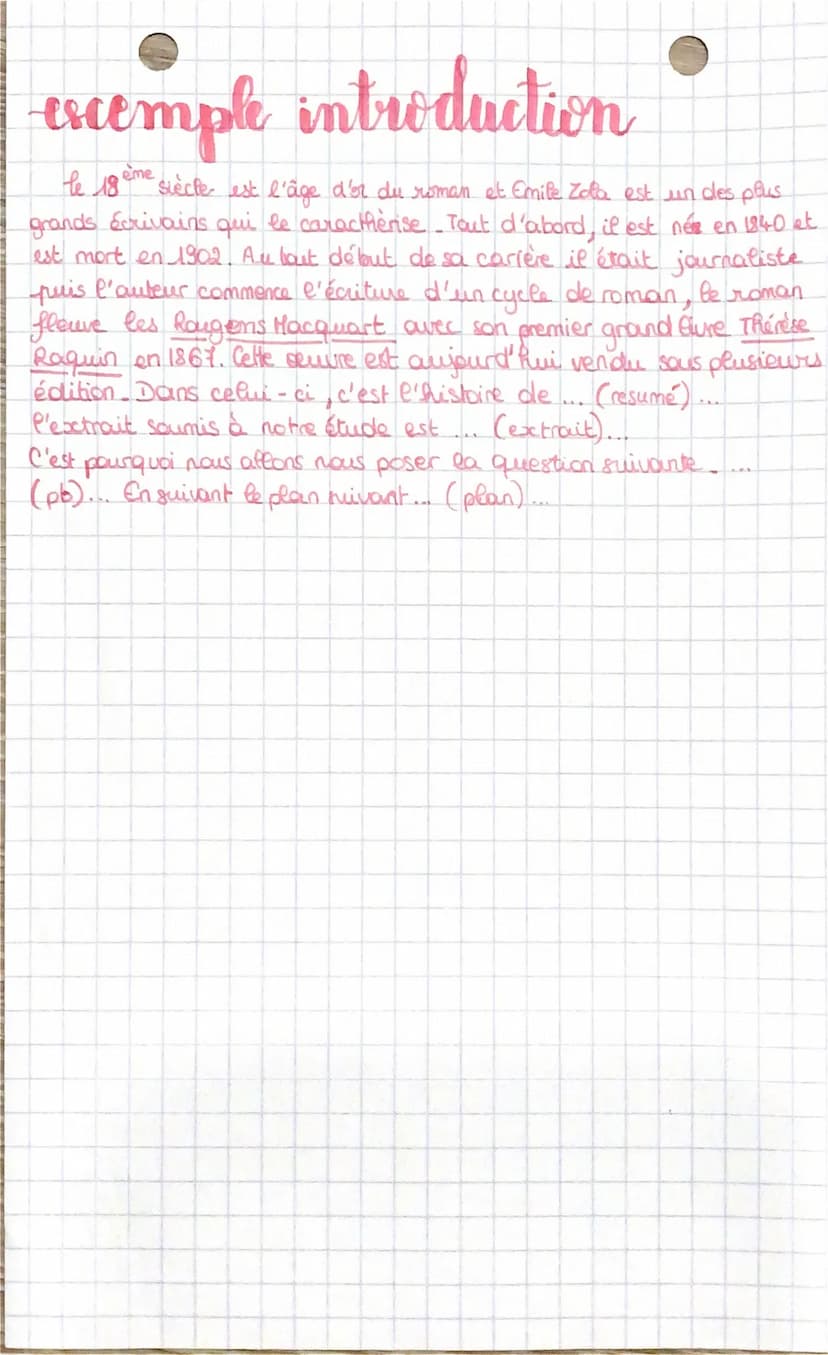 excemple introduction
le 18ème siècle est l'âge d'or du roman et Emile Zola est un des plus
grands écrivains qui le caracthèrise. Tout d'abord, il est née en 1840 et
est mort en 1902. Au tout début de sa carrière il était journaliste
puis l'auteur commence l'écriture d'un cycle de roman, le roman
fleuve les Rougens Macquart avec son premier grand livre Thérèse
Raquin en 1867. Cette oeuvre est aujourd'hui vendu sous plusieurs
édition. Dans celui-ci, c'est l'histoire de ... (resumé) ...
l'extrait soumis à notre étude est ... (extrait)...
C'est pourquoi nous allons nous poser la question suivante. ...
(pb)... En suivant le plan suivant... (plan)...